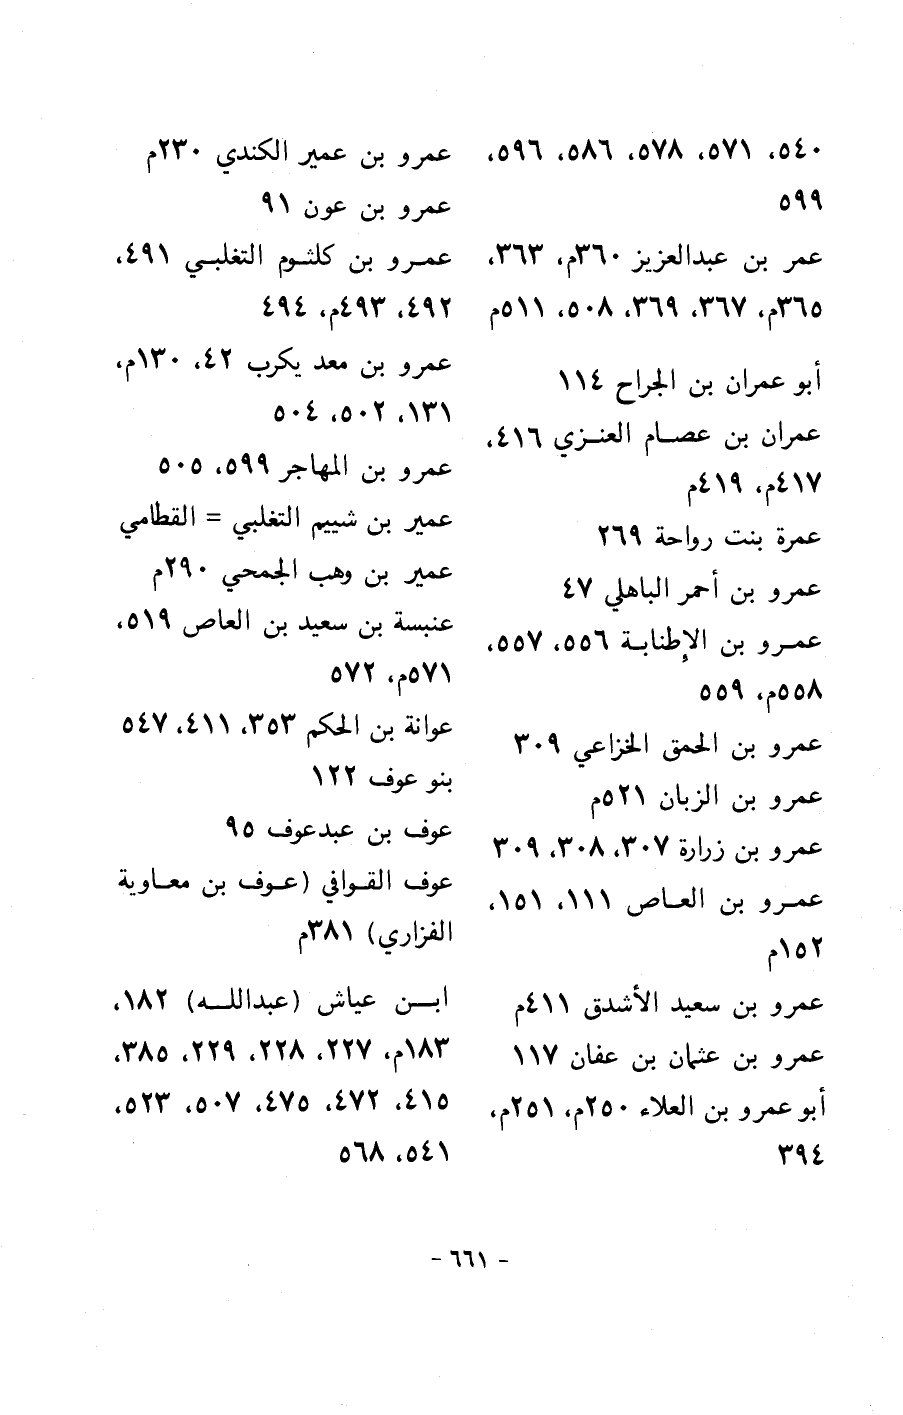 ٥٤٠، ٥٧١، ٥٧٨، ٥٨٦، ٥٩٦،
٥٩٩
عمر بن عبدالعزيز ٣٦٠م، ٣٦٣،
٣٦٥م، ٣٦٧، ٣٦٩، ٥٠٨، ٥١١م
أبو عمران بن الجراح ١١٤
عمران بن عصام العنزي ٤١٦،
٤١٧م، ٤١٩م
عمرة بنت رواحة ٢٦٩
عمرو بن أحمر الباهلي ٤٧
عمرو بن الإطنابة ٥٥٦، ٥٥٧،
٥٥٨م، ٥٥٩
عمرو بن الحمق الخزاعي ٣٠٩
عمرو بن الزبان ٥٢١م
عمرو بن زرارة ٣٠٧، ٣٠٨، ٣٠٩
عمرو بن العاص ١١١، ١٥١،
١٥٢م
عمرو بن سعيد الأشدق ٤١١م
عمرو بن عثمان بن عفان ١١٧
أبو عمرو بن العلاء ٢٥٠م، ٢٥١م،
٣٩٤
عمرو بن عمير الكندي ٢٣٠م
عمرو بن عون ٩١
عمرو بن كلثوم التغلبي ٤٩١،
٤٩٢، ٤٩٣م، ٤٩٤
عمرو بن معد يكرب ٤٢، ١٣٠م،
١٣١، ٥٠٢، ٥٠٤
عمرو بن المهاجر ٥٩٩، ٥٠٥
عمير بن شييم التغلبي = القطامي
عمير بن وهب الجمحي ٢٩٠م
عنبسة بن سعيد بن العاص ٥١٩،
٥٧١م، ٥٧٢
عوانة بن الحكم ٣٥٣، ٤١١، ٥٤٧
بنو عوف ١٢٢
عوف بن عبدعوف ٩٥
عوف القوافي (عوف بن معاوية
الفزاري) ٣٨١م
ابن عياش (عبدالله) ١٨٢،
١٨٣م، ٢٢٧، ٢٢٨، ٢٢٩، ٣٨٥،
٤١٥، ٤٧٢، ٤٧٥، ٥٠٧، ٥٢٣،
٥٤١، ٥٦٨
- ٦٦١ -